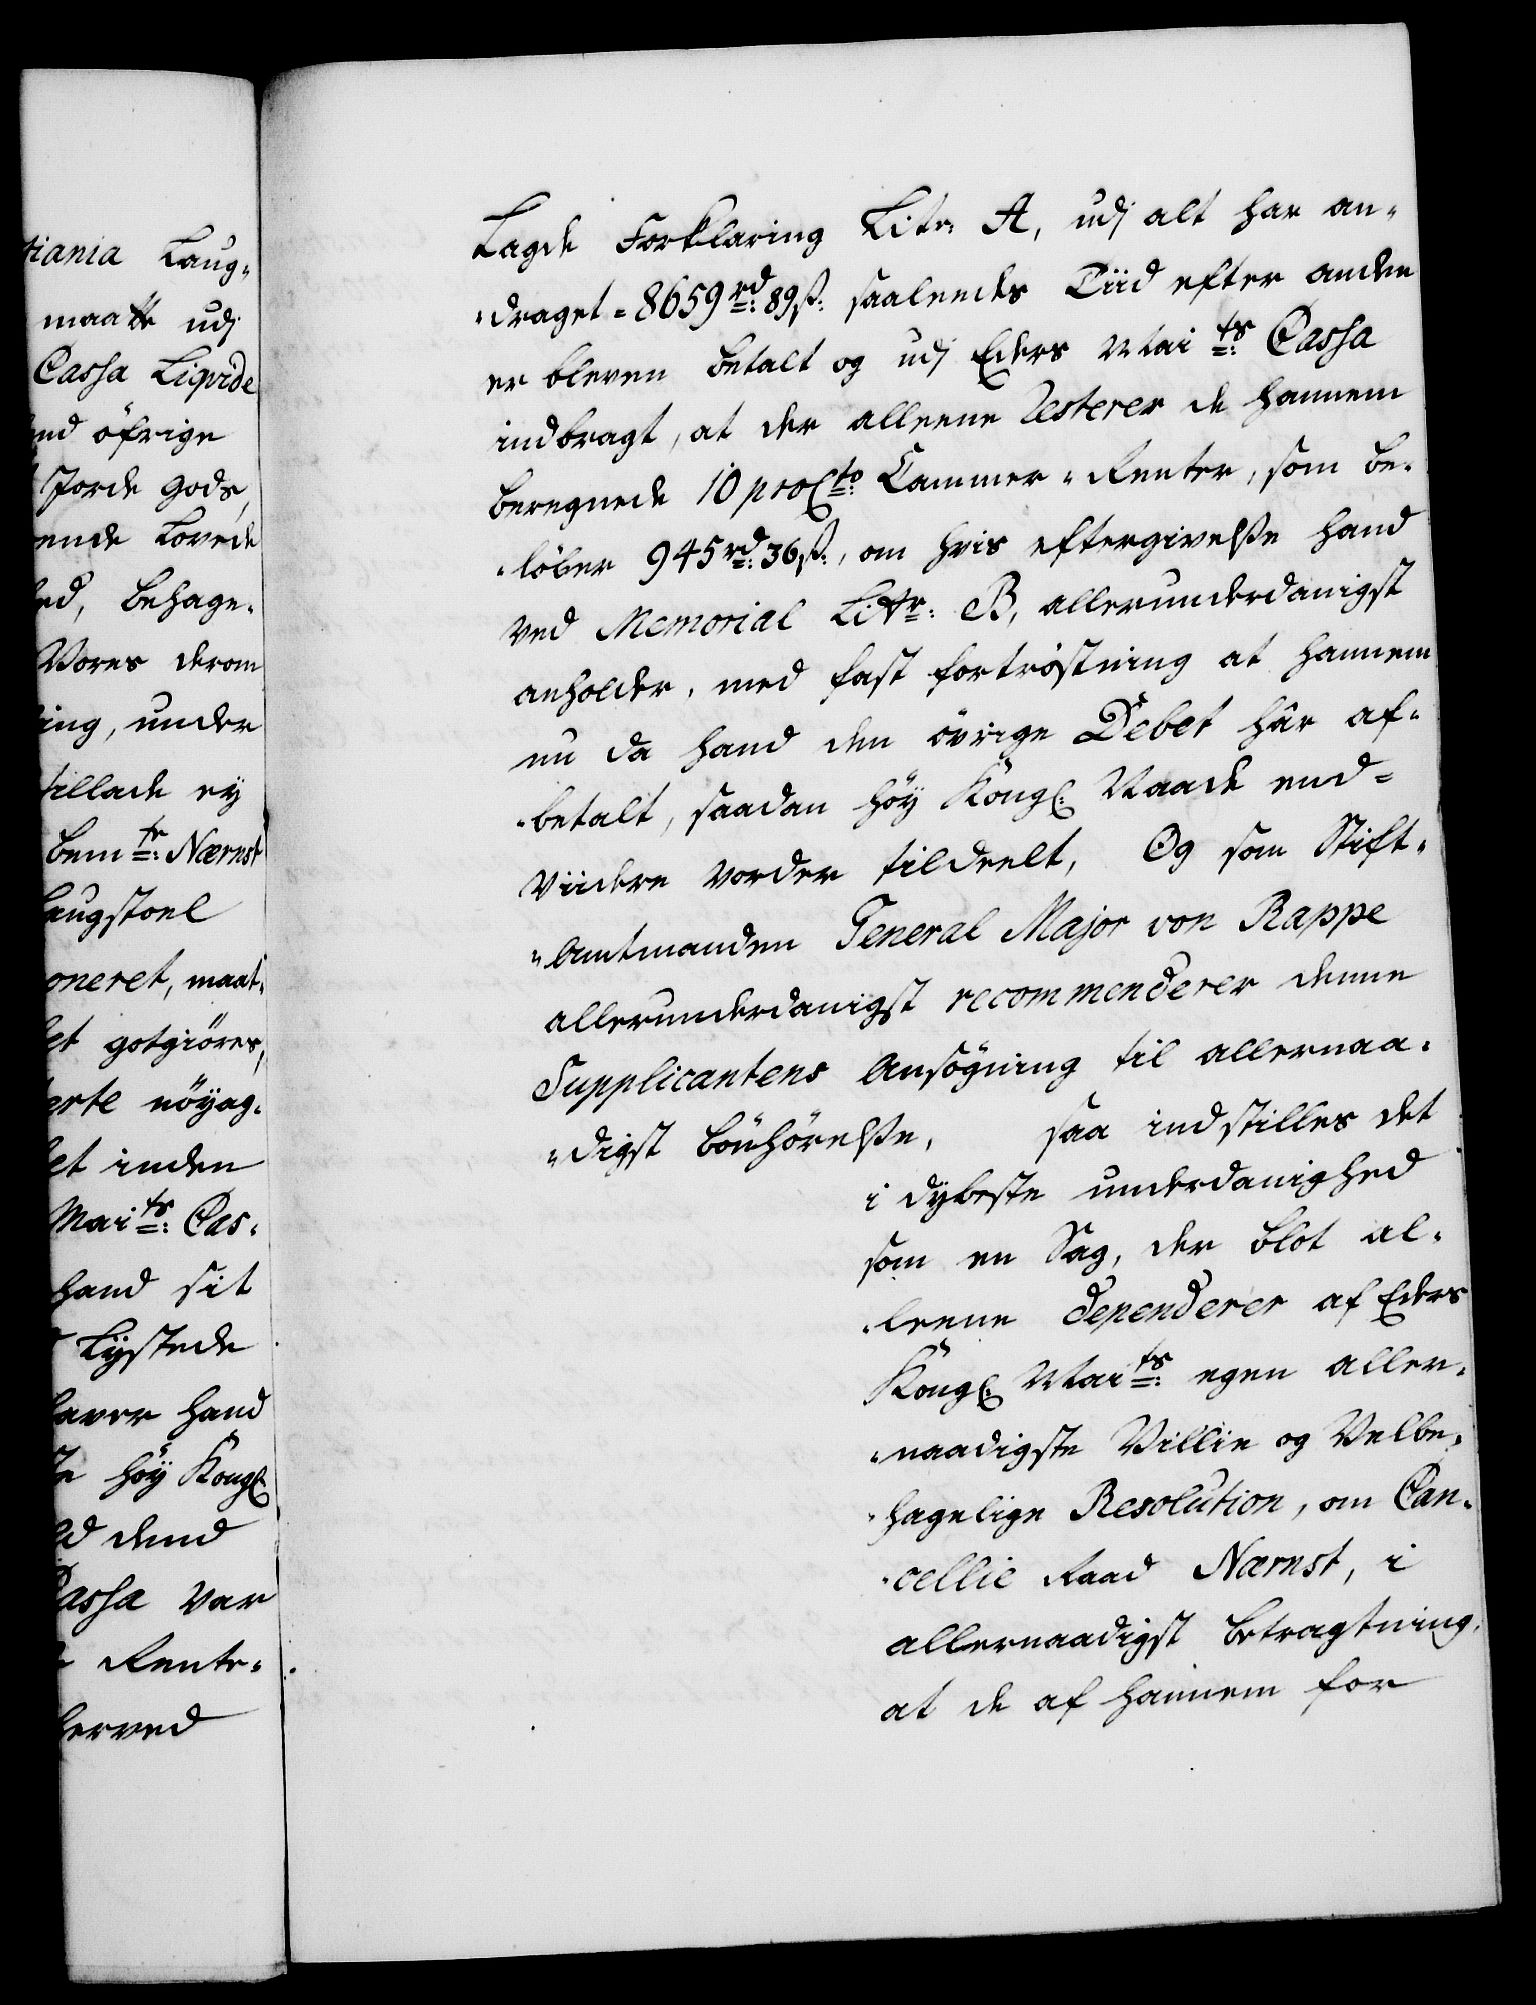 tiania Laug„
maatte udj
Cassa Liqvide
end öfrige
Jorde Gods,
ende Lovede
ed, behage„
Vores derom
ing, under
tillade ey
bemte: Nærnst
augstoel
oneret, maat„
et gotgiöres,
erte nöyag„
et inden
Maits: Cas„
hand sit
Lystede
haver hand
höy Kongl:
ed dend
Cassa var
Rente„
herved
Lagde Forklaring Litr: A, udj alt har an„
„draget = 8659 rd: 89 ß: saaledes Tiid efter anden
er bleven betalt og udj Eders Maits: Cassa
indbragt, at der alleene Resterer de hannem
beregnede 10 pro Cto: Cammer„Renter, som be„
„löber 945 rd: 36 ß:, om hvis eftergivelße hand
ved Memorial Littr: B, allerunderdanigst
anholder, med fast fortröstning at hannem
nu da hand den övrige Debet har af„
„betalt, saadan höy Kongl: Naade end=
Viidere vorder tildeelt, Og som Stift„
„Amtmanden General Major von Rappe
allerunderdanigst recommenderer denne
Supplicantens Ansögning til allernaa„
„digst bönhörelße, saa indstilles det
i dybeste underdanighed
som en Sag, der blot al„
„leene dependerer af Eders
Kongl: Maits: egen aller„
„naadigste Villie og Velbe„
„hagelige Resolution, om Can„
„cellie Raad Nærnst, i
allernaadigst betragtning,
at de af hannem for